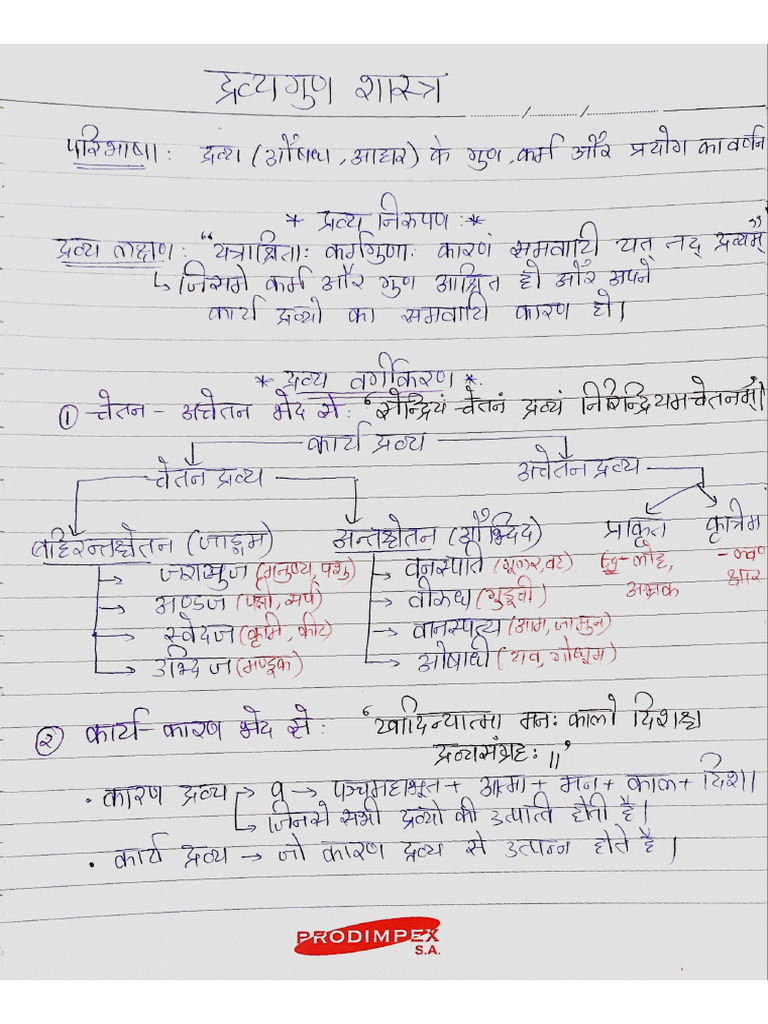 द्रव्यगुण शास्त्र
परिभाषा: द्रव्य (औषध, आहार) के गुण, कर्म और प्रयोग का वर्णन
* द्रव्य निरुपण :*
द्रव्य लक्षण: "यत्राश्रिताः कर्मगुणाः कारणं समवायी यत् तद् द्रव्यम्"
↳ जिसमे कर्म और गुण आश्रित हो और अपने
कार्य द्रव्यो का समवायि कारण हो।
* द्रव्य वर्गीकरण *
① चेतन - अचेतन भेद से: "सेन्द्रियं चेतनं द्रव्यं निरिन्द्रियमचेतनम्।
कार्य द्रव्य
चेतन द्रव्य अचेतन द्रव्य
बहिरन्तश्चेतन (जाङ्गम) अन्तश्चेतन (औद्भिद) प्राकृत कृत्रिम
जरायुज (मनुष्य, पशु) वनस्पति (गूलर, वट) लौह, - लवण
अण्डज (पक्षी, सर्प) वीरुध (गुडूची) अभ्रक क्षार
स्वेदज (कृमि, कीट) वानस्पत्य (आम, जामुन)
उद्भिज (मण्डूक) ओषधी (यव, गोधूम)
② कार्य - कारण भेद से: "खादिन्यात्मा मनः कालो दिशश्च
द्रव्यसंग्रहः॥"
• कारण द्रव्य → 9 → पञ्चमहाभूत + आत्मा + मन + काल + दिशा
↳ जिनसे सभी द्रव्यो की उत्पत्ति होती है।
• कार्य द्रव्य → जो कारण द्रव्य से उत्पन्न होते है।
PRODIMPEX
S.A.